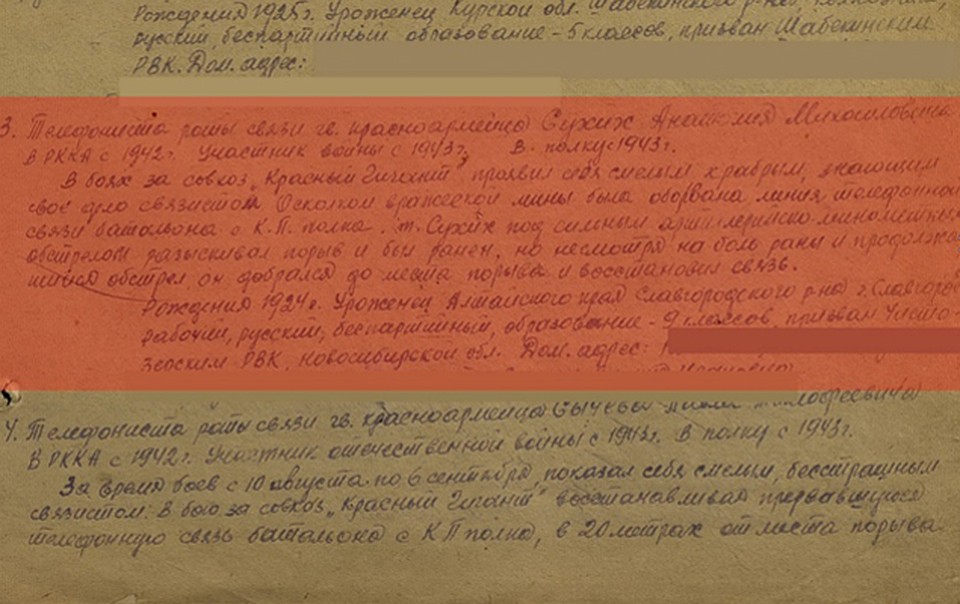 Рождения 1925г. Уроженец Курской обл. Шабекинского р-на,
русский, беспартийный образование - 5 классов, призван Шабекинским
РВК. Дом. адрес:
3. Телефониста роты связи гв. красноармейца Сухих Анатолия Михайловича
В РККА с 1942г. Участник войны с 1943г. В полку с 1943г.
В боях за совхоз „Красный Гигант" проявил себя смелым храбрым, знающим
свое дело связистом Осколком вражеской мины была оборвана линия телефонной
связи батальона с К.П. полка. т. Сухих под сильным артиллерийско-минометным
обстрелом разыскивал порыв и был ранен, но несмотря на боль раны и продолжа
обстрел он добрался до места порыва и восстановил связь.
Рождения 1924г. Уроженец Алтайского края Славгородского р-на г. Славгород
рабочий, русский, беспартийный, образование - 9 классов, призван Чисто-
зерским РВК, Новосибирской обл. Дом. адрес:
4. Телефониста роты связи гв. красноармейца
В РККА с 1942г. Участник отечественной войны с 1943г. В полку с 1943г.
За время боев с 10 августа по 6 сентября, показал себя смелым, бесстрашным
связистом. В бою за совхоз „Красный Гигант" восстанавливал прервавшуюся
телефонную связь батальона с КП полка, в 20 метрах от места порыва